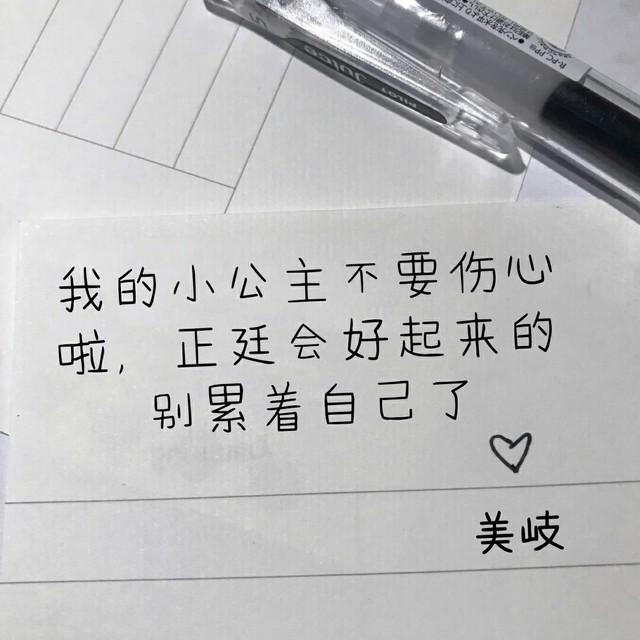 我的小公主不要伤心
啦,正廷会好起来的
别累着自己了
美岐
PILOT Juice